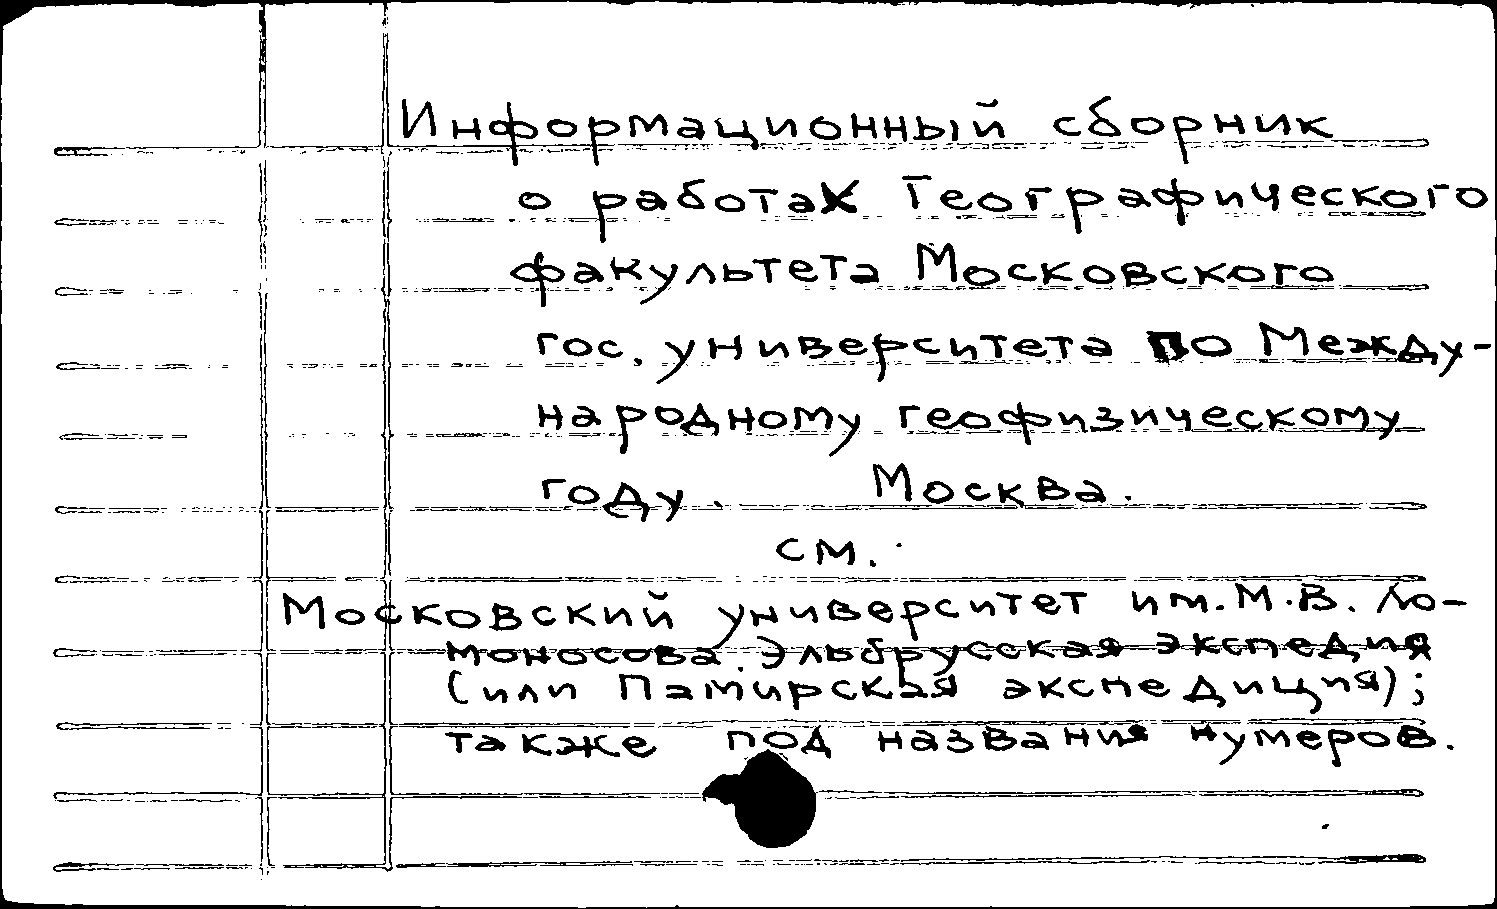 Информационный сборник
о работах Географического
факультета Московского
гос. университета по Между-
народному геофизическому
году. Москва.
см.
Московский университет им. М.В. Ло-
моносова. Эльбрусская экспедия
(или Памирская экспедиция);
также под названия нумеров.